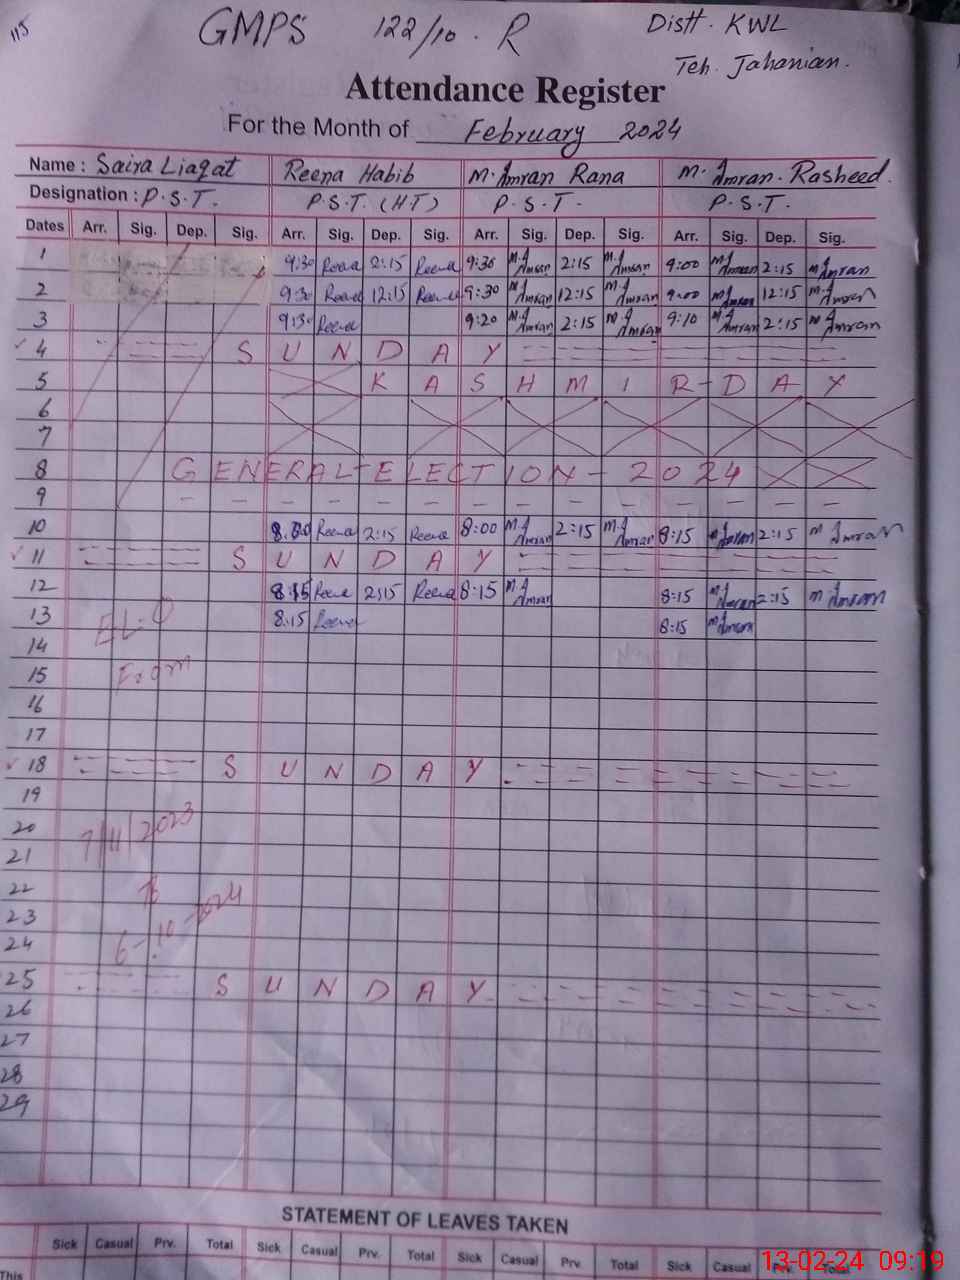 115
GMPS 122/10.R Distt. KWL
Teh. Jahanian.
Attendance Register
For the Month of February 2024
Name : Saira Liaqat Reena Habib M. Amran Rana M. Amran. Rasheed.
Designation : P.S.T. P.S.T. (HT) P.S.T. P.S.T.
Dates Arr. Sig. Dep. Sig. Arr. Sig. Dep. Sig. Arr. Sig. Dep. Sig. Arr. Sig. Dep. Sig.
1 9:30 Reena 2:15 Reena 9:30 M. Amran 2:15 M. Amran 9:00 M. Amran 2:15 M. Amran
2 9:30 Reena 12:15 Reena 9:30 M. Amran 12:15 M. Amran 9:00 M. Amran 12:15 M. Amran
3 9:30 Reena 9:20 M. Amran 2:15 M. Amran 9:10 M. Amran 2:15 M. Amran
4 SUNDAY
5 KASHMIR-DAY
6
7
8 GENERAL-ELECTION-2024
9
10 8:00 Reena 2:15 Reena 8:00 M. Amran 2:15 M. Amran 8:15 M. Amran 2:15 M. Amran
11 SUNDAY
12 8:15 Reena 2:15 Reena 8:15 M. Amran 8:15 M. Amran 2:15 M. Amran
13 8:15 Reena 8:15 M. Amran
14
15 From
16
17
18 SUNDAY
19
20 7/11/2023
21
22
23
24 6-10-2024
25 SUNDAY
26
27
28
29
STATEMENT OF LEAVES TAKEN
Sick Casual Prv. Total Sick Casual Prv. Total Sick Casual Prv. Total Sick Casual Prv. Total
This
13-02-24 09:19